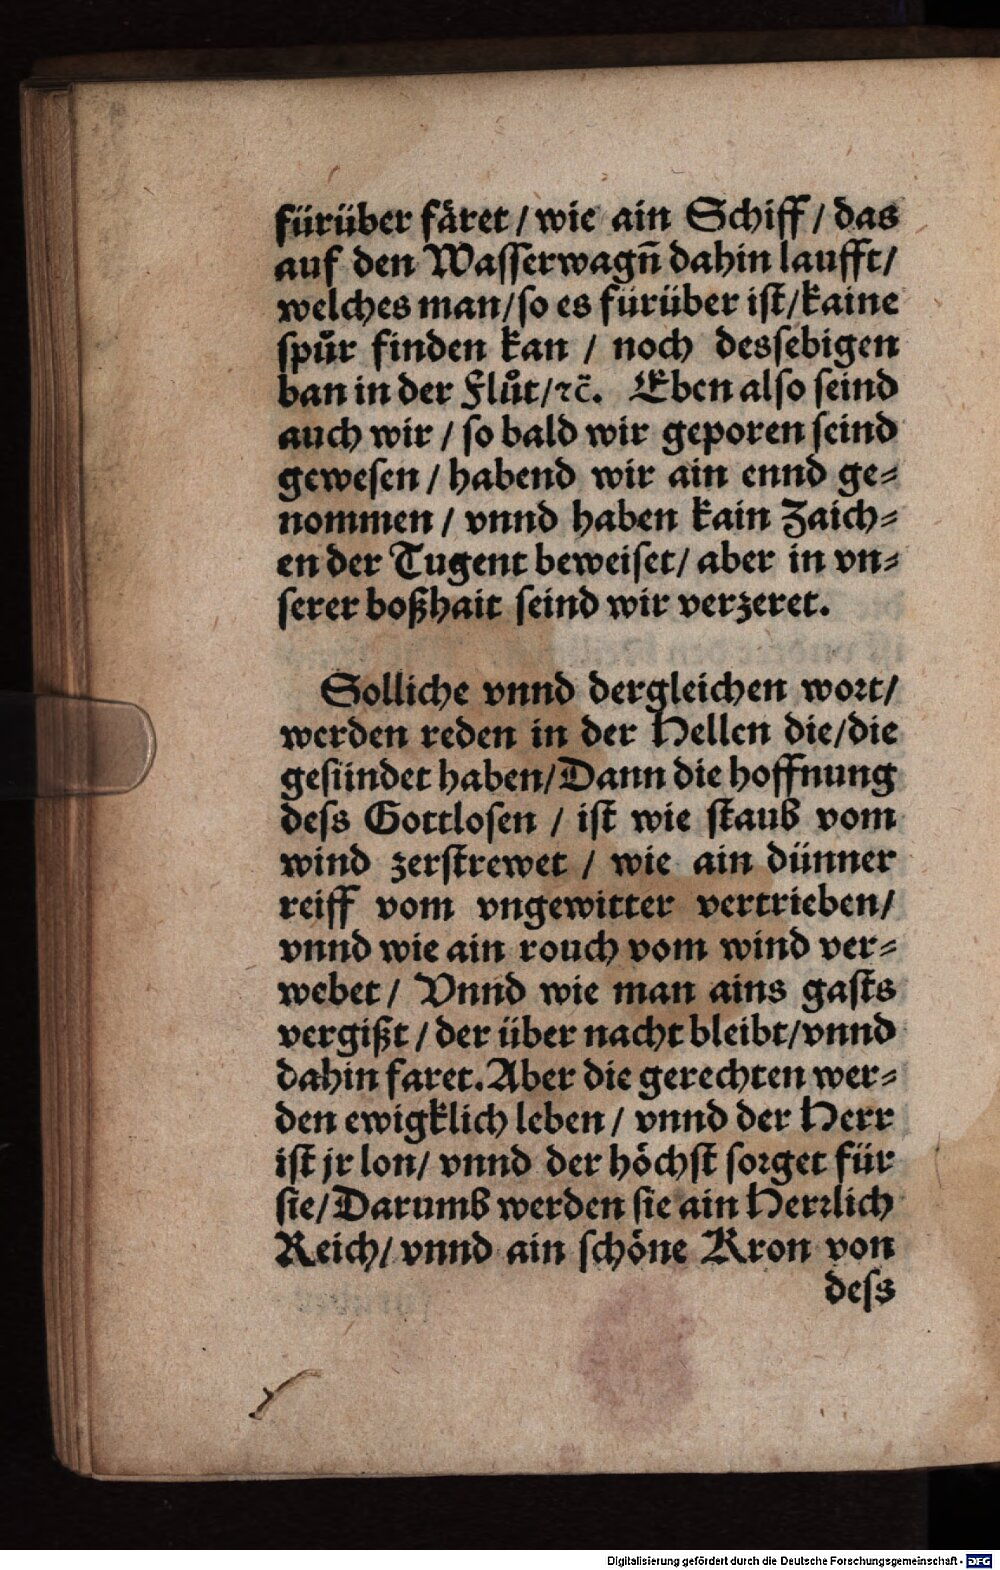 fürüber färet / wie ain Schiff / das
auf den Wasserwagn̄ dahin laufft /
welches man / so es fürüber ist / kaine
spůr finden kan / noch dessebigen
ban in der Flůt / ꝛc̄. Eben also seind
auch wir / so bald wir geporen seind
gewesen / habend wir ain ennd ge⸗
nommen / vnnd haben kain Zaich⸗
en der Tugent beweiset / aber in vn⸗
serer boßhait seind wir verzeret.
Solliche vnnd dergleichen wort /
werden reden in der Hellen die / die
gesündet haben / Dann die hoffnung
dess Gottlosen / ist wie staub vom
wind zerstrewet / wie ain dünner
reiff vom vngewitter vertrieben /
vnnd wie ain rouch vom wind ver⸗
webet / Vnnd wie man ains gasts
vergißt / der über nacht bleibt / vnnd
dahin faret. Aber die gerechten wer⸗
den ewigklich leben / vnnd der Herr
ist jr lon / vnnd der höchst sorget für
sie / Darumb werden sie ain Herrlich
Reich / vnnd ain schöne Kron von
dess
Digitalisierung gefördert durch die Deutsche Forschungsgemeinschaft - DFG